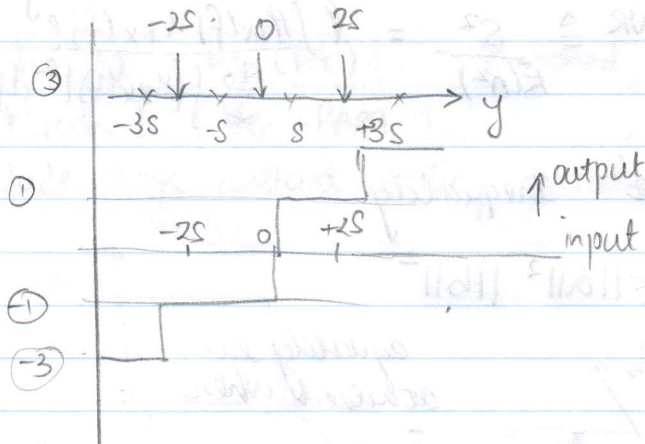 -2S 0 2S
③
-3S -S S +3S y
① ↑ output
-2S 0 +2S input
-1
-3